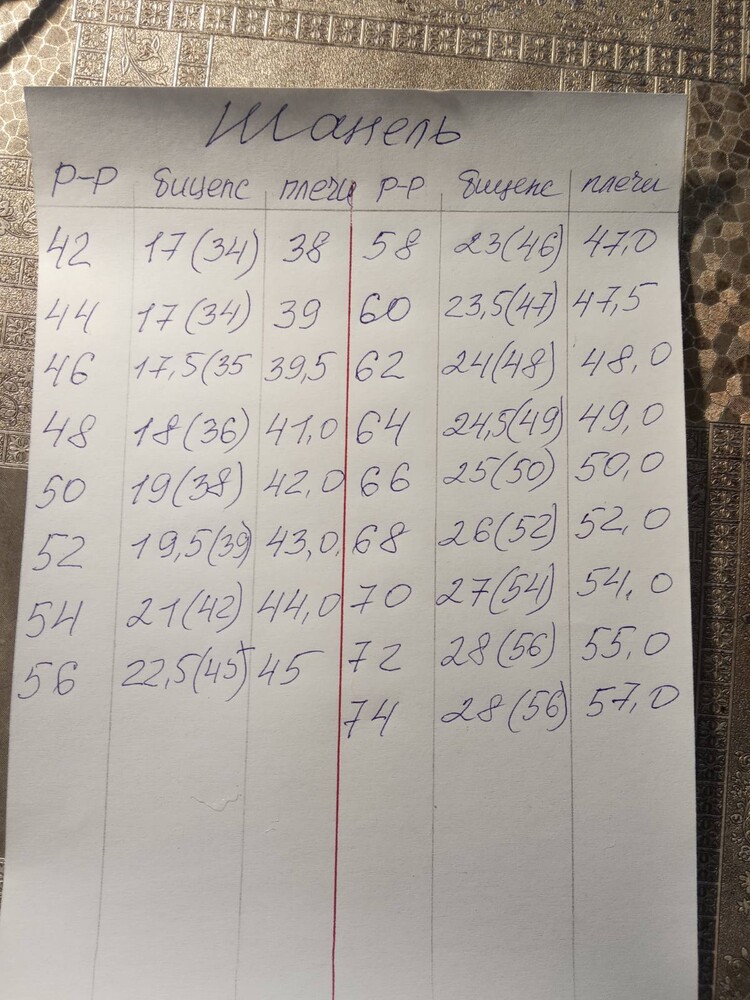 Шанель
Р-Р бицепс плечи Р-Р бицепс плечи
42 17(34) 38 58 23(46) 47,0
44 17(34) 39 60 23,5(47) 47,5
46 17,5(35 39,5 62 24(48) 48,0
48 18(36) 41,0 64 24,5(49) 49,0
50 19(38) 42,0 66 25(50) 50,0
52 19,5(39) 43,0 68 26(52) 52,0
54 21(42) 44,0 70 27(54) 54,0
56 22,5(45) 45 72 28(56) 55,0
74 28(56) 57,0